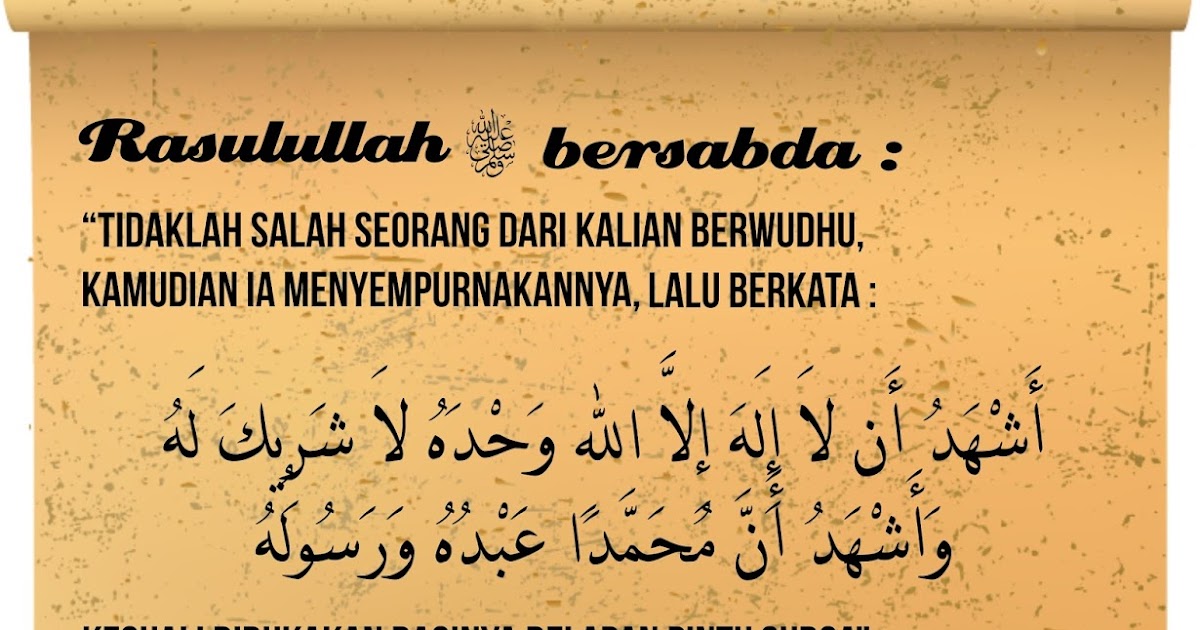 Rasulullah ﷺ bersabda :
“TIDAKLAH SALAH SEORANG DARI KALIAN BERWUDHU,
KAMUDIAN IA MENYEMPURNAKANNYA, LALU BERKATA :
أَشْهَدُ أَن لاَ إِلَهَ إِلاَّ الله وَحْدَهُ لاَ شَرِيكَ لَهُ
وَأَشْهَدُ أَنَّ مُحَمَّدًا عَبْدُهُ وَرَسُولُهُ
KECUALI DIBUKAKAN BAGINYA DELAPAN PINTU SURGA”